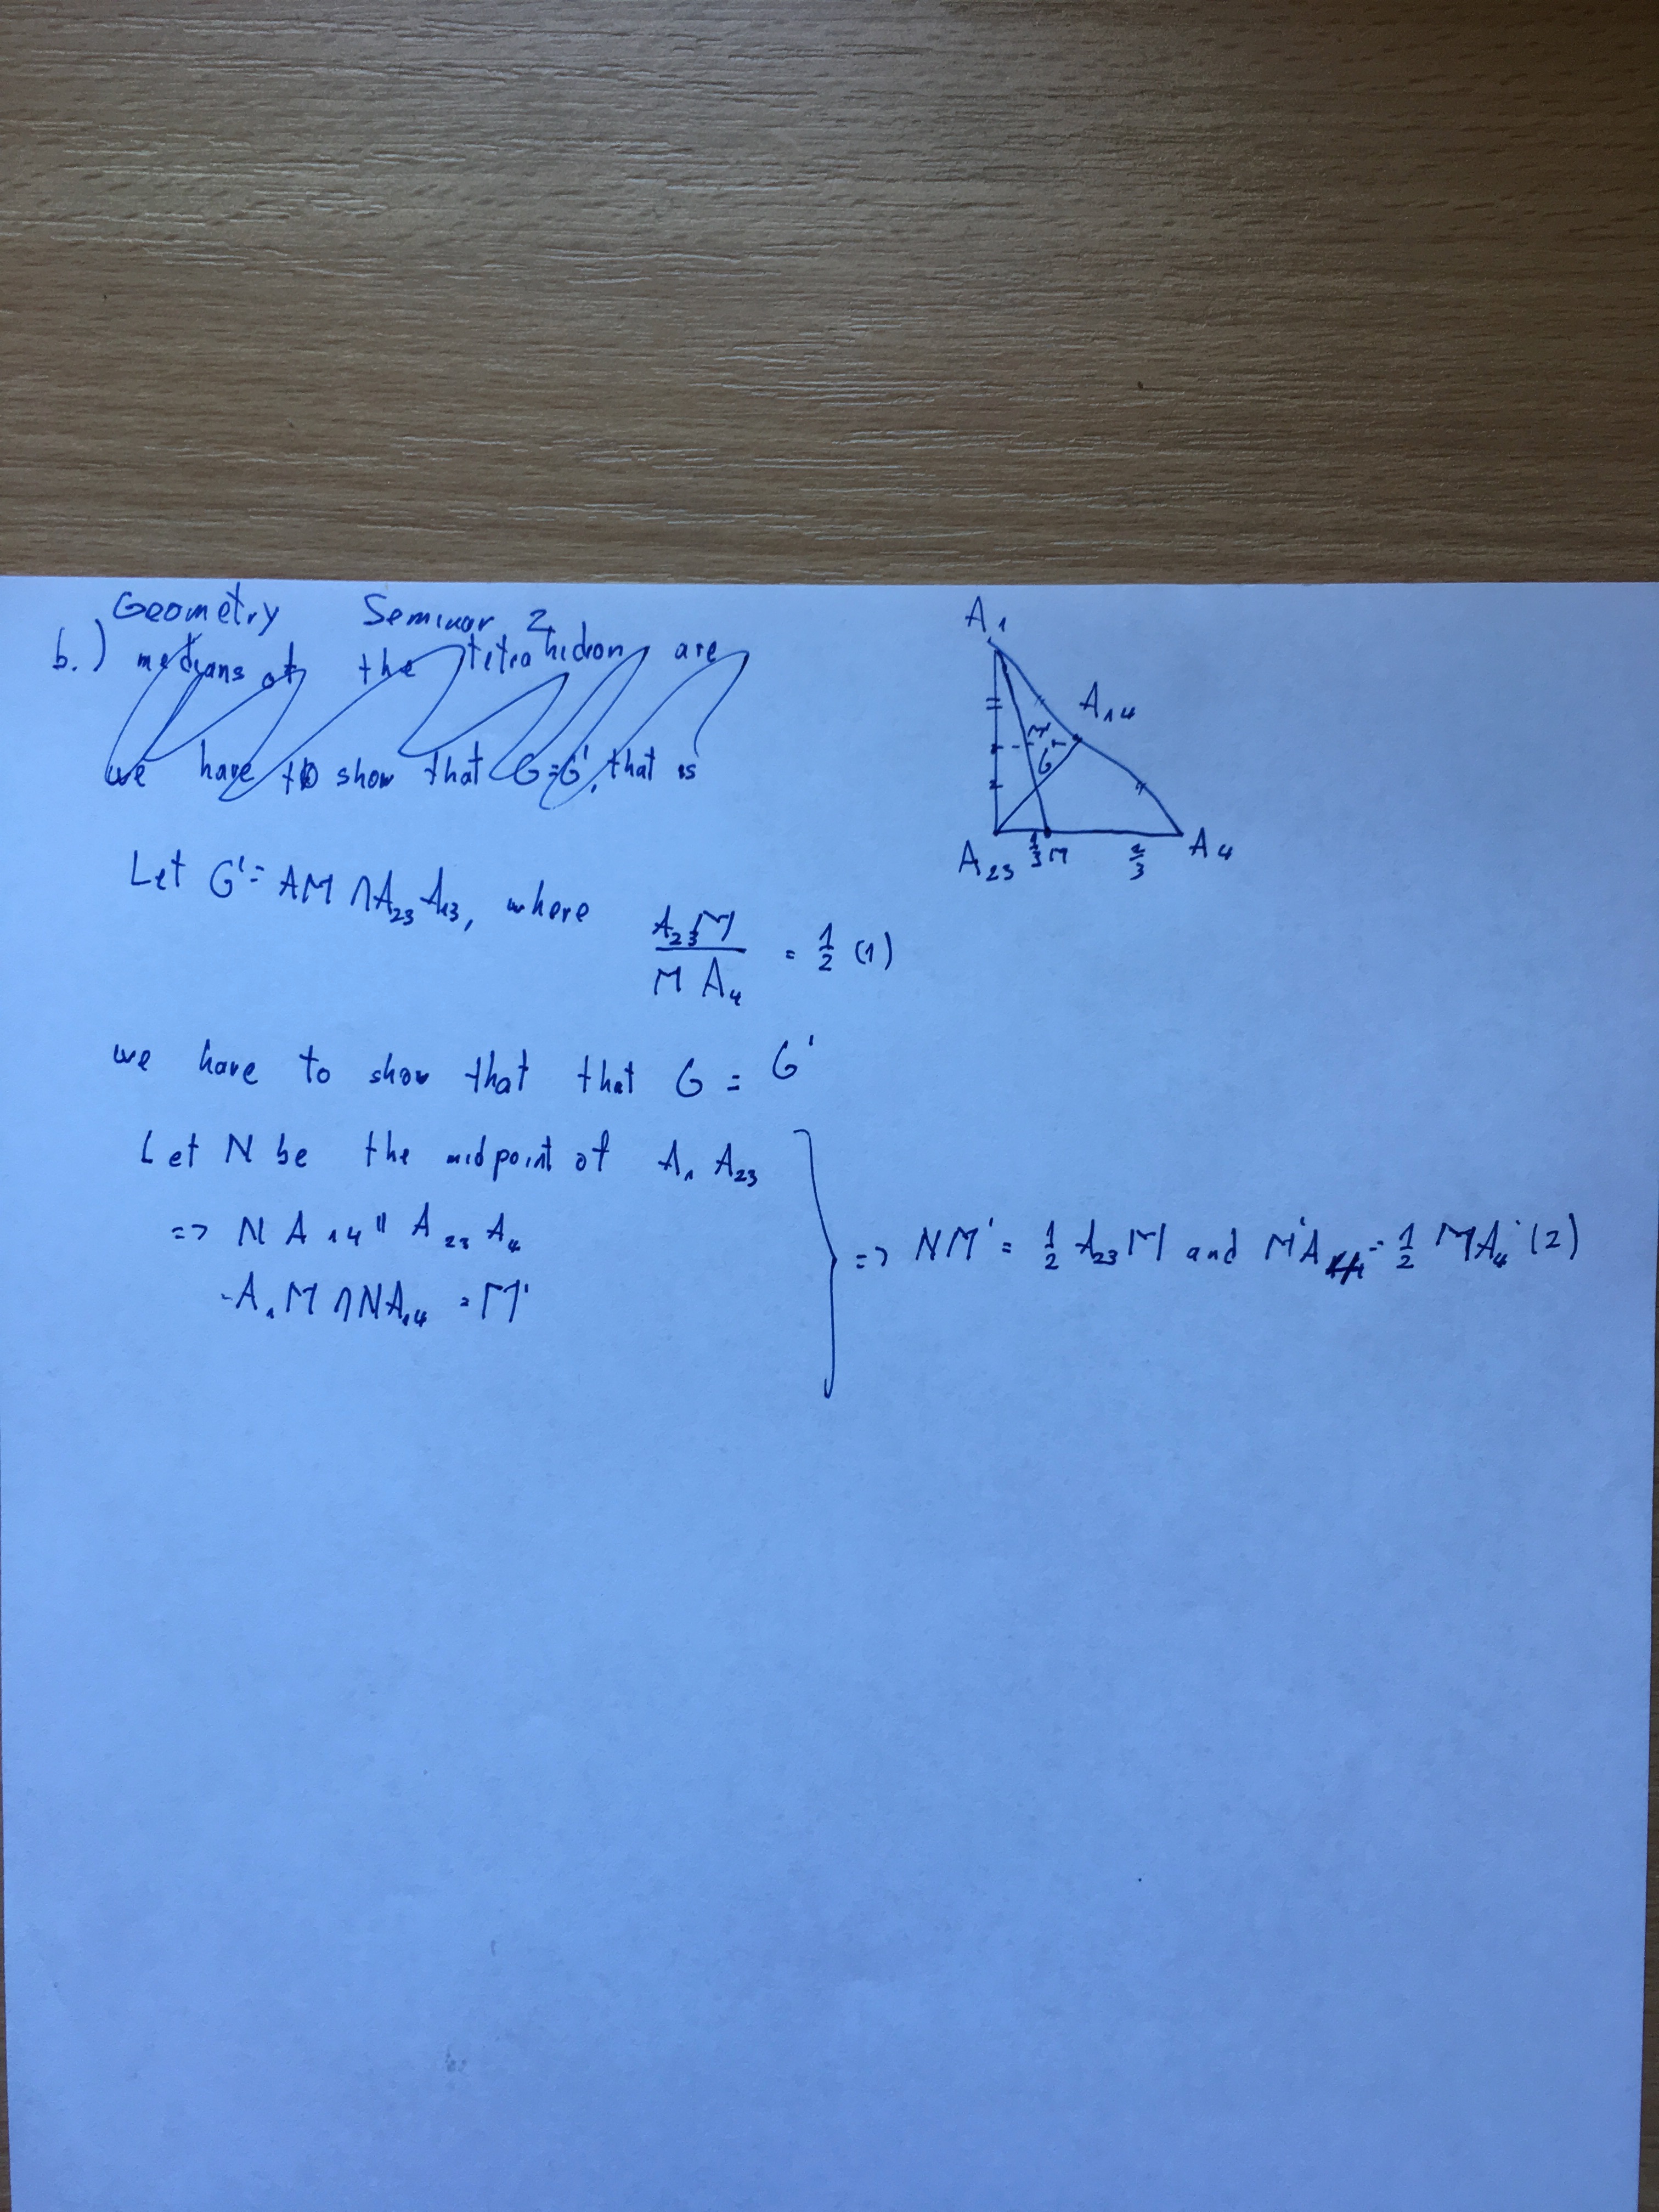 Geometry Seminar 2
b.) medians of the tetrahidron are
we have to show that G=G', that is
A₁
A₁₄
M'
G
A₂₃ 1/3 M 2/3 A₄
Let G' = AM ∩ A₂₃A₁₃, where A₂₃M / MA₄ = 1/2 (1)
we have to show that that G = G'
Let N be the midpoint of A₁ A₂₃
=> N A₁₄ || A₂₃ A₄
=> NM' = 1/2 A₂₃M and M'A = 1/2 MA₄ (2)
-A₁M ∩ NA₁₄ = M'